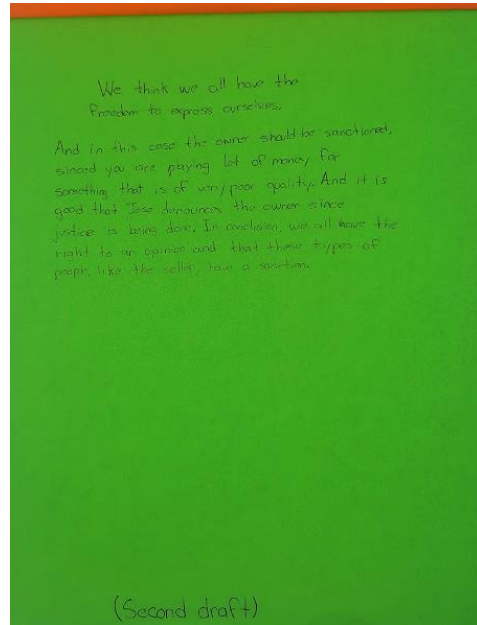 We think we all have the
freedom to express ourselves.
And in this case the owner should be sanctioned,
sinced you are paying lot of money for
something that is of very poor quality. And it is
good that Jose denounces the owner since
justice is being done. In conclusion, we all have the
right to an opinion and that these types of
people, like the seller, have a sanction.
(Second draft)